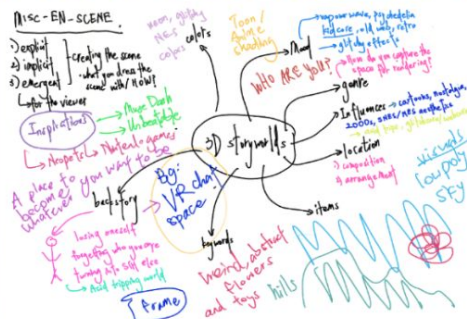 MISC-EN-SCENE
1) explicit
2) implicit
3) emergent
creating the scene
what you dress the
scene with/HOW?
for the viewer
Inspirations
Muse Dash
Unbeatable
Neopets
Nitendo games
A place to
become
whatever
you want to be
backstory
losing oneself
forgetting who you are
turning into smth else
Acid tripping world
neon, glitchy
NES
colors
colors
Toon/
Anime
shading
Mood
vaporwave, psychedelia
kidcore, old web, retro
glitchy effects
WHO ARE YOU?
How do you capture the
space for rendering?
genre
Influences
cartoons, nostalgia,
2000s, SNES/NES aesthetics
location
composition
arrangement
items
3D storyworlds
Eg:
VRchat
space
keywords
weird, abstract
flowers
and toys
frame
hills
visuals
low poly
sky